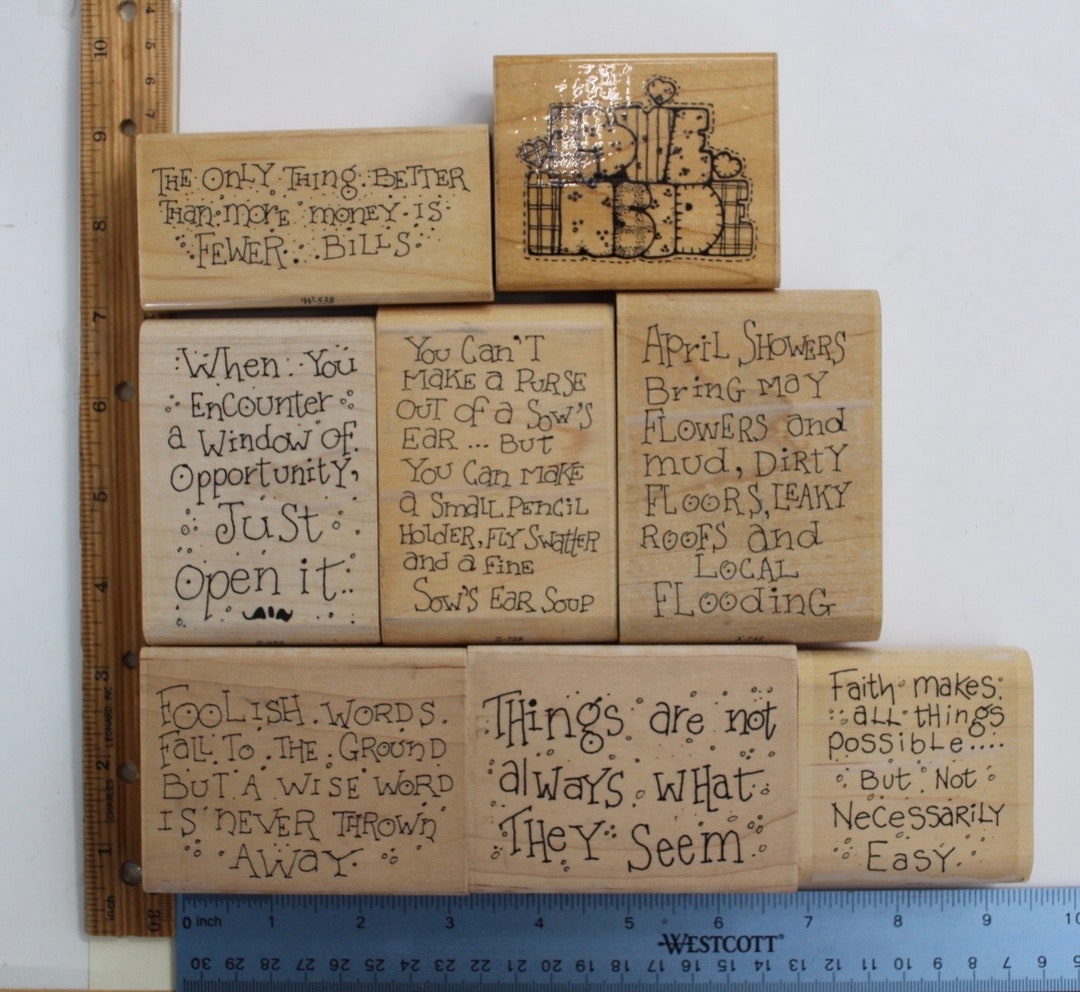 THE ONLY THing BETTER
THAN more money IS
FEWER BILLS
W-535
When You
EnCounter
a Window OF
Opportunity,
Just
Open it..
You Can'T
MAKE a PURSE
OUT OF a SOW'S
EAR ... BUT
YOU Can MAKE
a SmaLL PENCIL
HOLDER, FLY SWatter
and a FinE
SOW'S EAR SOUP
APriL SHOWERS
Bring MAY
FLOWERS and
mud, DIRTY
FLOORS, LEAKY
ROOFS and
LOCAL
FLOODinG
FOOLISH WORDS
FALL TO THE GROUND
BUT A WISE WORD
IS NEVER THROWN
AWAY
THings are not
always WHat
THEY Seem
Faith makes
aLL tHings
possibLe....
But Not
NeCESSARILY
EaSY
10
9
8
7
6
5
4
3
2
1
inch
0 inch 1 2 3 4 5 6 7 8 9 10
WESTCOTT
30 29 28 27 26 25 24 23 22 21 20 19 18 17 16 15 14 13 12 11 10 9 8 7 6 5